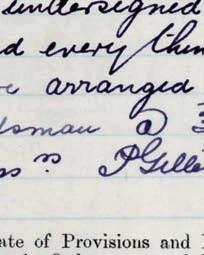 undersigned
d every thin
arranged
dsman @ 3
P Gille
ate of Provisions and